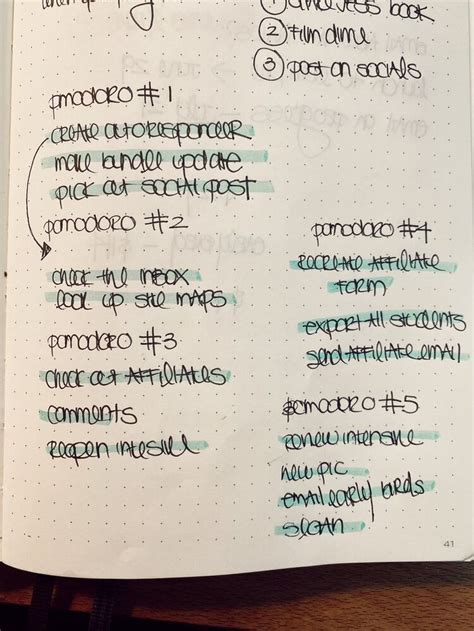 book
② film dime
③ post on socials
pomodoro #1
create autoresponder
make bundle update
pick out social post
pomodoro #2
check the inbox
look up site maps
pomodoro #3
check out affiliates
comments
reopen
pomodoro #4
recreate affiliate
form
export all students
send affiliate email
pomodoro #5
renew intensive
new pic
email early birds
slogan
41